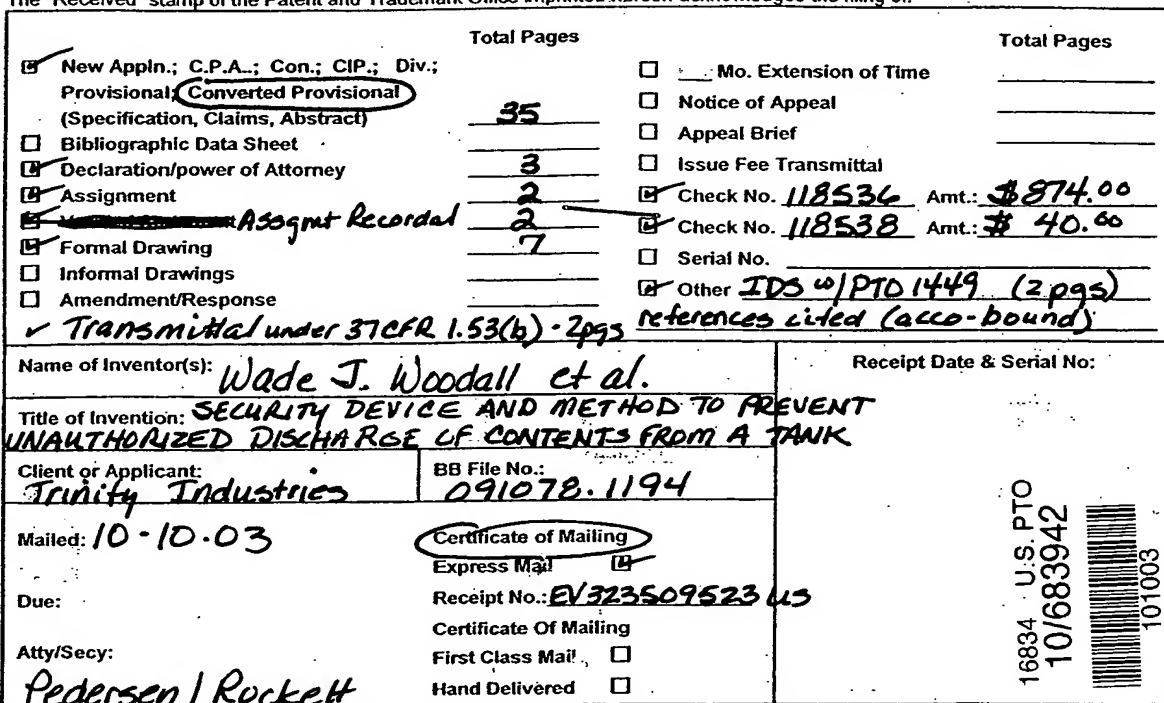 The "Received" stamp of the Patent and Trademark Office imprinted hereon acknowledges the filing of:
Total Pages
New Appln.; C.P.A..; Con.; CIP.; Div.;
Provisional; Converted Provisional
(Specification, Claims, Abstract) 35
Bibliographic Data Sheet
Declaration/power of Attorney 3
Assignment 2
Assgmt Recordal 2
Formal Drawing 7
Informal Drawings
Amendment/Response
✓ Transmittal under 37CFR 1.53(b) - 2pgs
Total Pages
Mo. Extension of Time
Notice of Appeal
Appeal Brief
Issue Fee Transmittal
Check No. 118536 Amt.: $874.00
Check No. 118538 Amt.: $ 40.00
Serial No.
Other IDS w/PTO 1449 (2 pgs)
references cited (acco-bound)
Name of Inventor(s): Wade J. Woodall et al.
Title of Invention: SECURITY DEVICE AND METHOD TO PREVENT
UNAUTHORIZED DISCHARGE OF CONTENTS FROM A TANK
Receipt Date & Serial No:
Client or Applicant:
Trinity Industries
BB File No.:
091078.1194
Mailed: 10-10-03
Due:
Atty/Secy:
Pedersen / Rockett
Certificate of Mailing
Express Mail
Receipt No.: EV323509523 US
Certificate Of Mailing
First Class Mail
Hand Delivered
16834 U.S. PTO
10/683942
101003